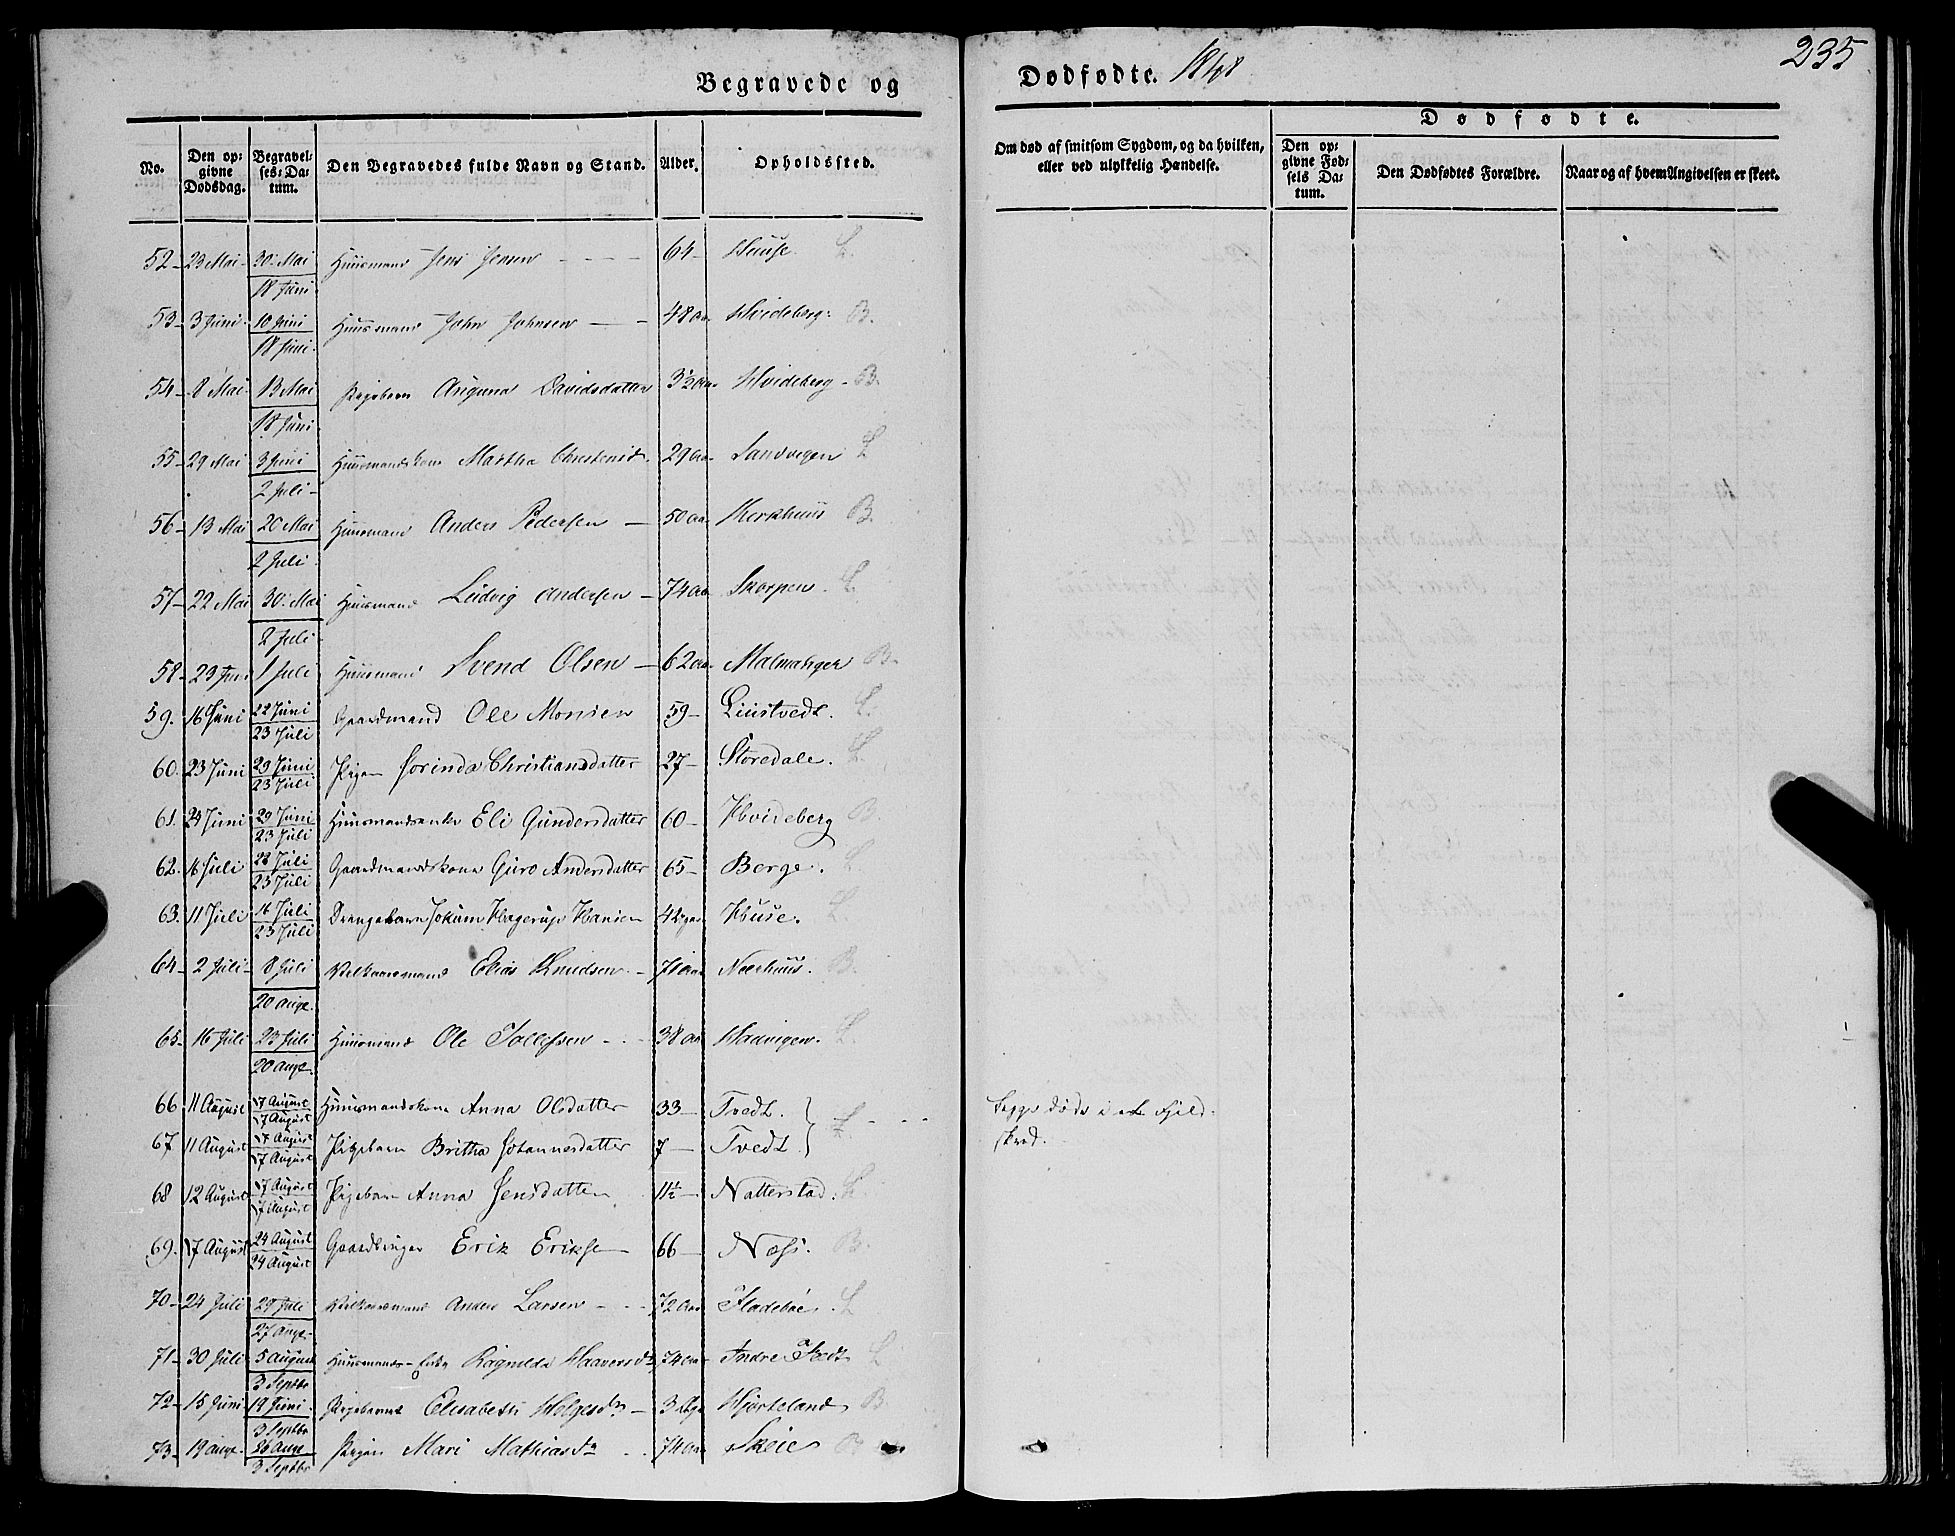 235
Begravede og Dødfødte. 1848
No. Den opgivne Dødsdag. Begravelses-Datum. Den Begravedes fulde Navn og Stand. Alder. Opholdssted. Om død af smitsom Sygdom, og da hvilken, eller ved ulykkelig Hændelse. Dødfødte. Den opgivne Fødsels Datum. Den Dødfødtes Forældre. Naar og af hvem Angivelsen er skeet.
52 - 23 Mai - 30 Mai 18 Juni Huusmand Jens Jensen 64 - Huuse L.
53 - 3 Juni - 10 Juni 18 Juni Huusmand John Johnsen 48 aar Hvideberg B.
54 - 8 Mai 13 Mai 18 Juni Pigebarn Anguna Davidsdatter 3½ aar Hvideberg - B.
55 - 29 Mai 3 Juni 2 Juli - Huusmandskone Martha Christensd. 29 aar Sandvigen L
56 - 13 Mai 20 Mai 2 Juli Huusmand Anders Pedersen 50 aar Kerkhuus B.
57 - 22 Mai 30 Mai 2 Juli Huusmand Ludvig Andersen 74 aar Skorpen L.
58 - 23 Juni 1 Juli Huusmand Svend Olsen 62 aar Malmanger B.
59. 16 Juni 22 Juni 23 Juli Gaardmand Ole Monsen 59 - Liustvedt. L.
60. 23 Juni 29 Juni 23 Juli Pigen Sorinda Christiansdatter 27 - Storedale. L.
61. 24 Juni 29 Juni 23 Juli Huusmandsenke Eli Gundersdatter 60 - Hvideberg B.
62. 16 Juli 22 Juli 23 Juli Gaardmandskone Guro Andersdatter 65 - Berge. L.
63. 11 Juli 16 Juli 23 Juli Drengebarn Jokum Hagerup Hansen Huse. L.
64 - 2 Juli - 8 Juli 20 Aug. Kilkaarsmand Elias Knudsen 71 aar Neerhuus. B.
65 - 16 Juli 23 Juli 20 Aug. Huusmand Ole Tollefsen 38 aar Hadvigen. L.
66 11 August 17 August 17 August Huusmandskone Anna Olsdatter 33 - Tvedt. L. Begge døde i et Fjeld-
skred.
67 - 11 August 17 August 17 August Pigebarn Britha Johannesdatter 7 - Tvedt.
68 12 August 17 August 17 August Pigebarn Anna Jensdatter 11½ - Natterstad. L.
69. 17 August 24 August 24 August Gaardbruger Erik Eriksen 66 - Næss. B.
70 - 24 Juli 29 Juli 27 Aug. Kilkaarsmand Anders Larsen 72 aar Fladebøe. L
71 - 30 Juli 5 August 3 Septbr Huusmands-Enke Ragnilda Haaversd. 74 aar Indre Tvedt L
72 - 15 Juni 19 Juni 3 Septbr Pigebarnet Elisabeth Helgesdr Hjorteland B
73 - 19 Aug. 26 Aug. 3 Septbr Pigen Mari Mathiasdr 74 aar Skeie B